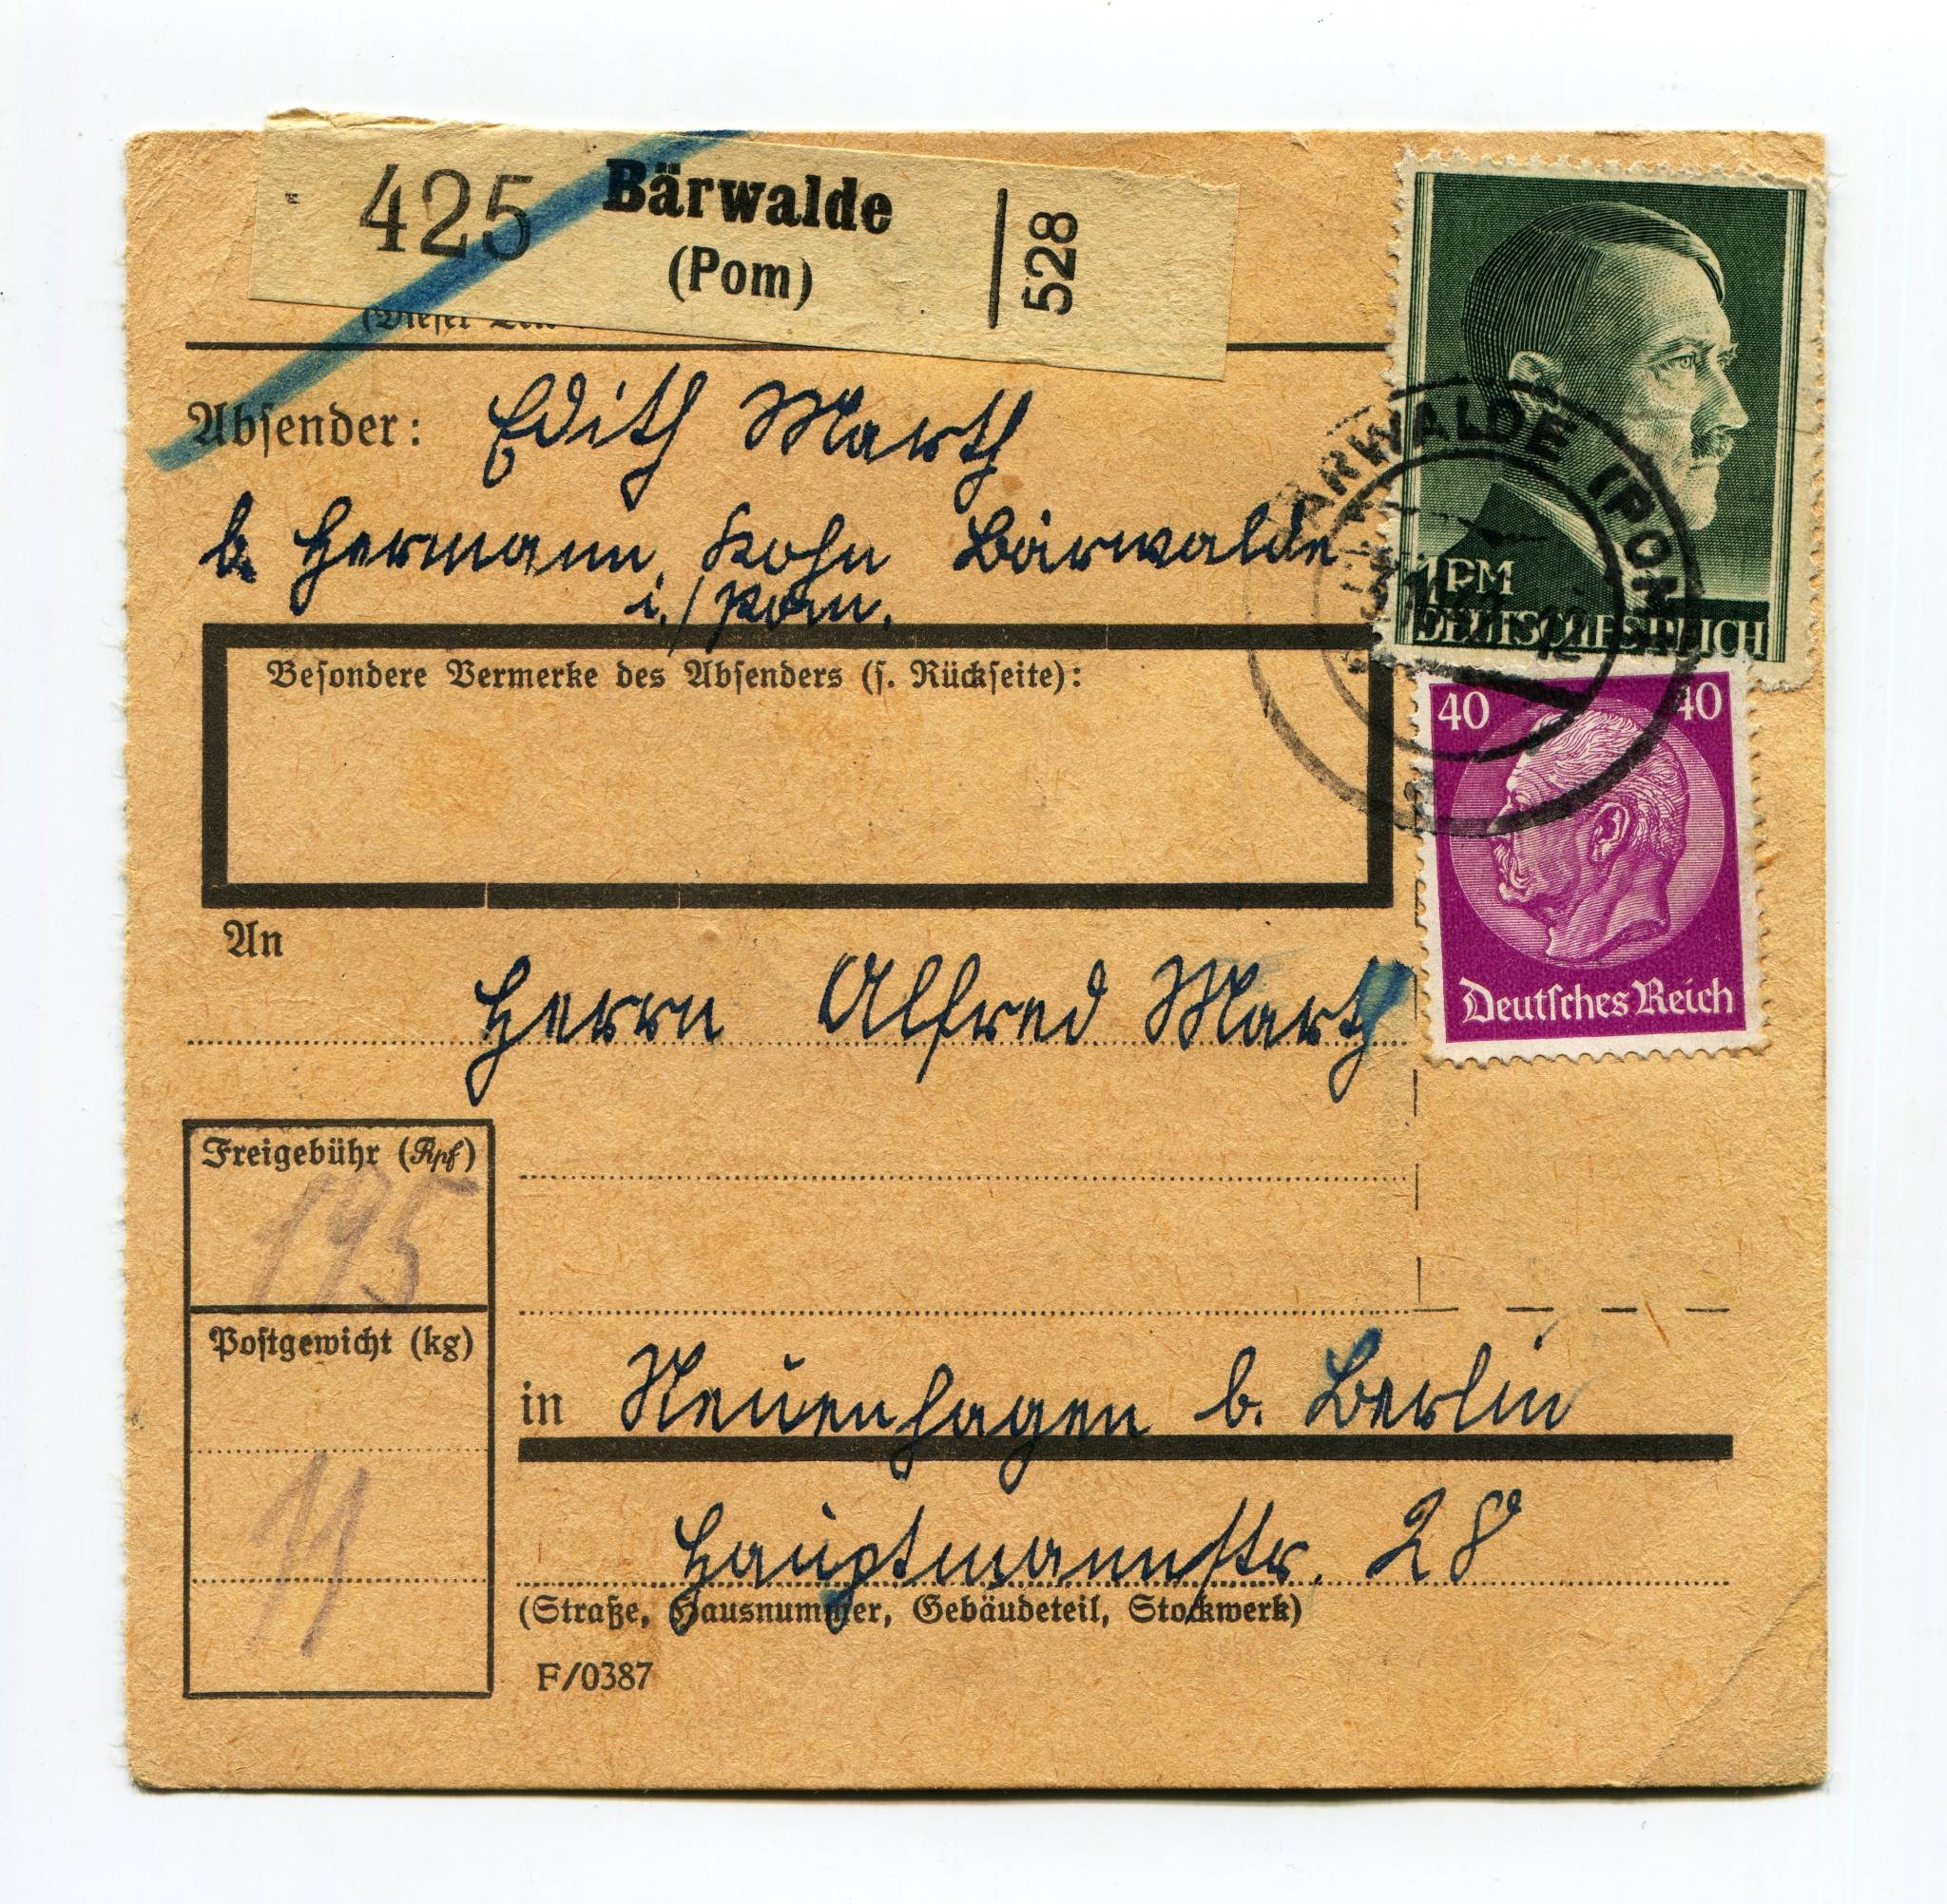 425 Bärwalde (Pom) 528
(Dieser
Absender: Edith Marth
b. Hermann Kohn Bärwalde
i./Pom.
Besondere Vermerke des Absenders (s. Rückseite):
ÄRWALDE (POM
1RM
DEUTSCHES REICH
40 40
Deutsches Reich
An
Herrn Alfred Marth
Freigebühr (Rpf)
195
Postgewicht (kg)
11
in Neuenhagen b. Berlin
Hauptmannstr. 28
(Straße, Hausnummer, Gebäudeteil, Stockwerk)
F/0387